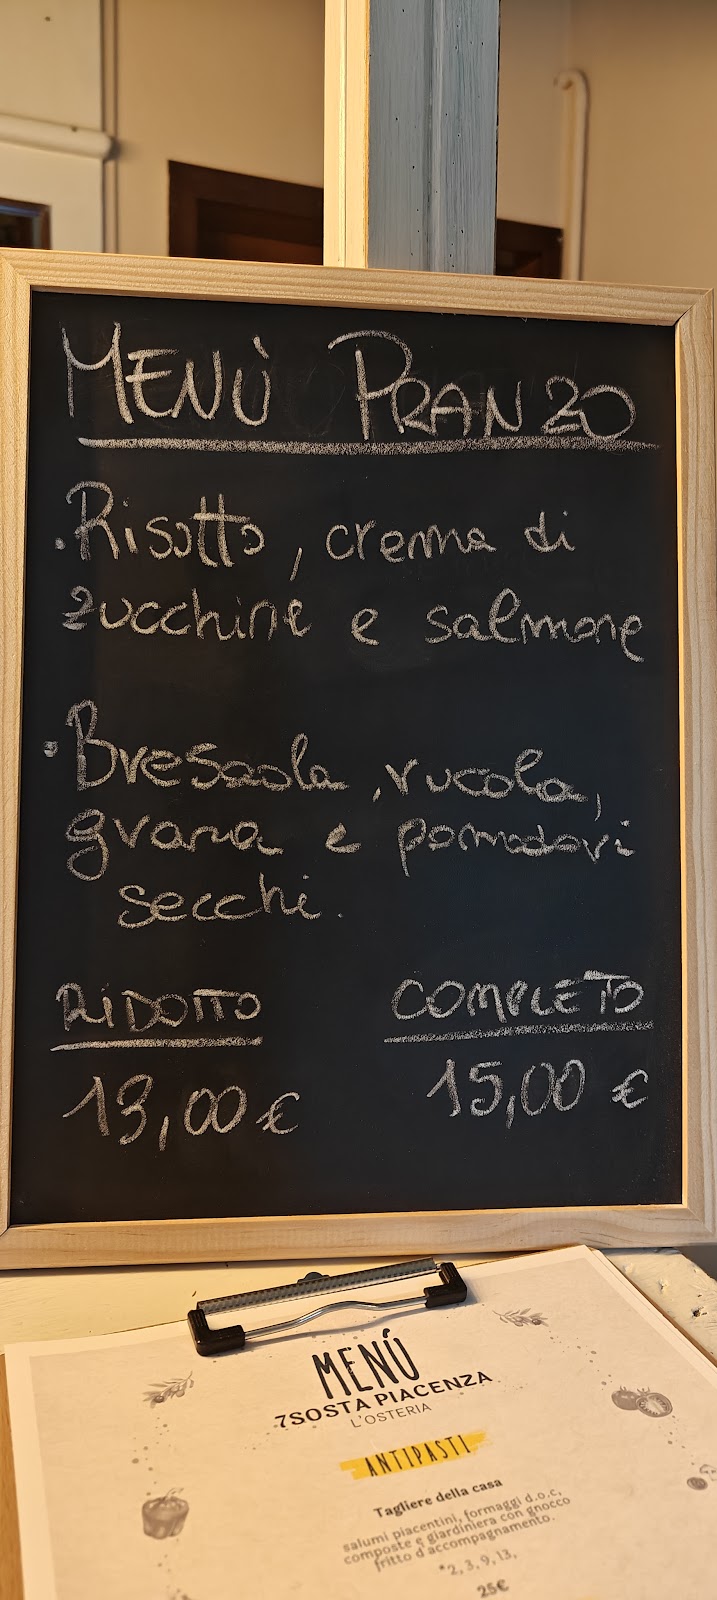 MENÙ PRANZO
• Risotto, crema di
zucchine e salmone
• Bresaola, rucola,
grana e pomodori
secchi.
RIDOTTO COMPLETO
13,00 € 15,00 €
MENÚ
7SOSTA PIACENZA
L'OSTERIA
ANTIPASTI
Tagliere della casa
salumi piacentini, formaggi d.o.c,
composte e giardiniera con gnocco
fritto d'accompagnamento.
*2, 3, 9, 13,
25€